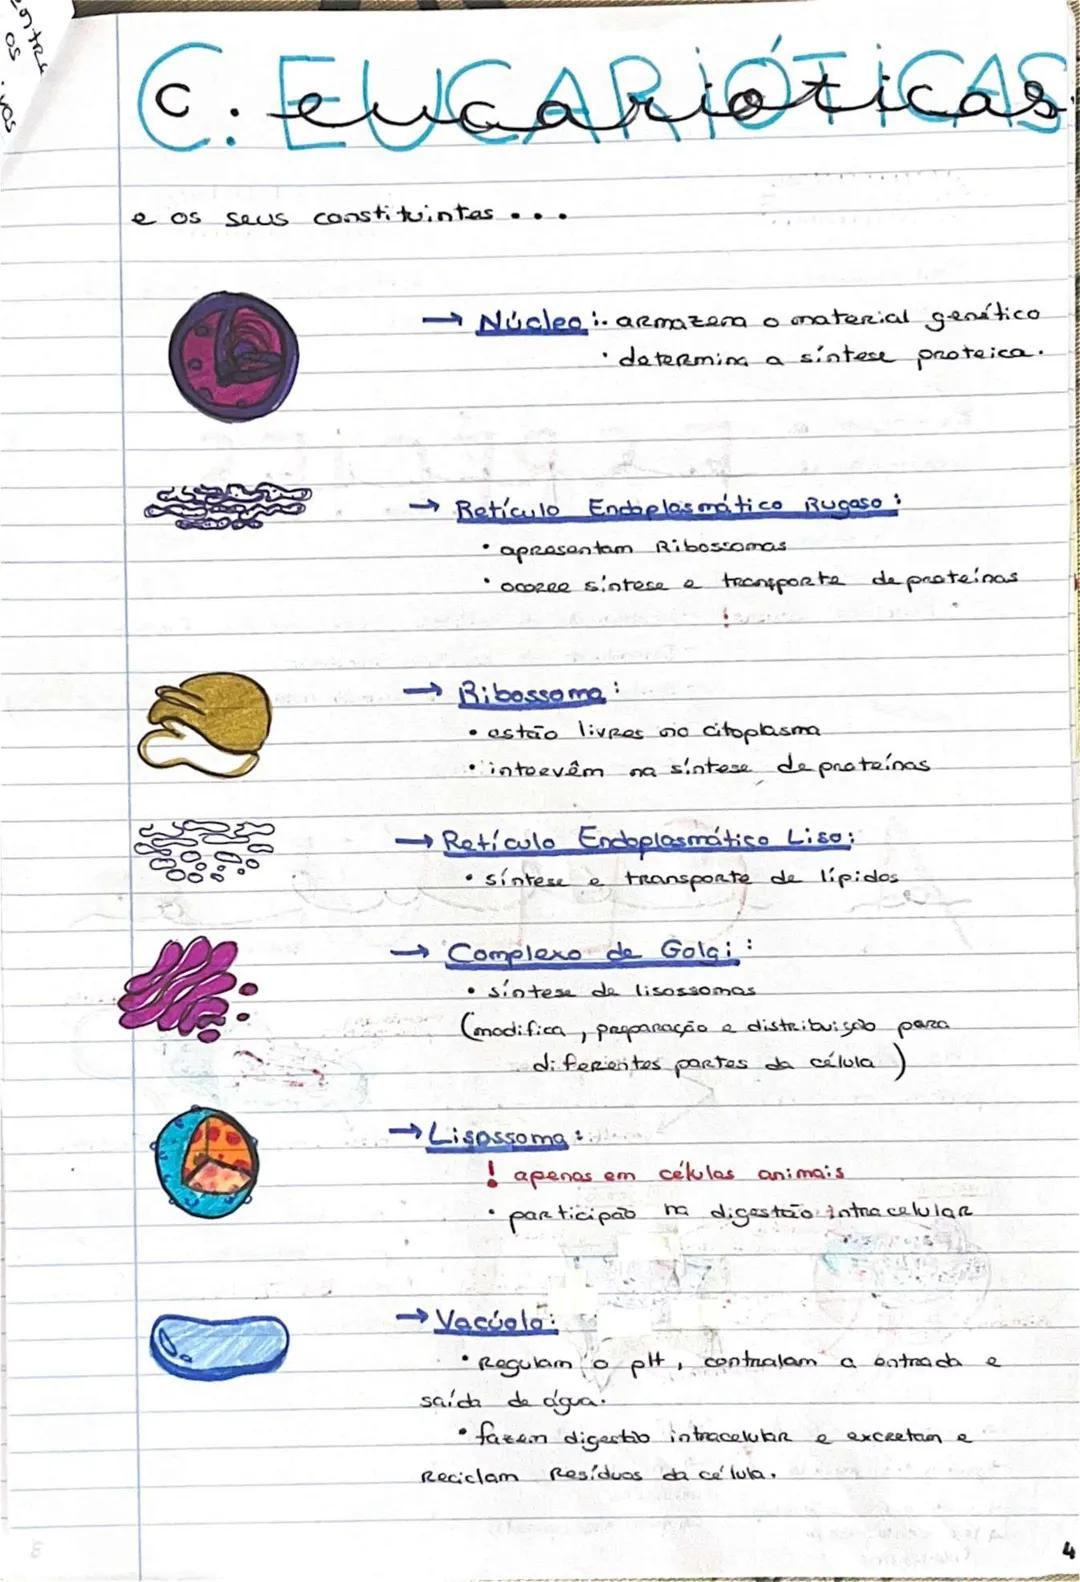 contra
os
vos
C. EUCARIÓTICAS
c. eucarióticas
e os seus constituintes ...
→ Núcleo: • armazena o material genético
• determina a síntese proteica.
→ Retículo Endoplasmático Rugoso:
• apresentam Ribossomas
• ocorre síntese e transporte de proteínas
!
→ Ribossoma:
• estão livres no citoplasma
• intervêm na síntese de proteínas
→ Retículo Endoplasmático Liso:
• síntese e transporte de lípidos
→ Complexo de Golgi:
• síntese de lisossomas
(modifica, preparação e distribuição para
diferentes partes da célula)
→ Lisossoma:
! apenas em células animais
• participão na digestão intracelular
→ Vacúolo:
• Regulam o pH, controlam a entrada e
saída de água.
• fazem digestão intracelular e excretam e
Reciclam Resíduos da célula.
3
4